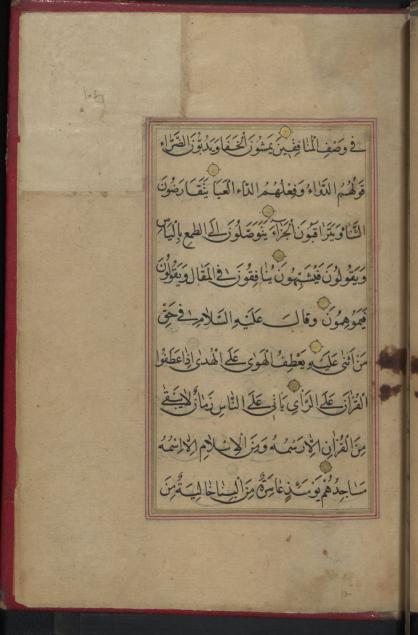 في وصف المنافقين يمشون الخفا ويدبون الضراء
قولهم الدواء وفعلهم الداء العيا يتقارضون
الثنا ويتراقبون الجزاء يتوصلون الى الطمع بالياس
ويقولون فيشبهون ينافقون في المقال ويقولون
فيموهمون وقال عليه السلام في حق
من اثنى عليه يعطف الهوى على الهدى اذا عطفوا
القران على الراى ياتى على الناس زمان لا يبقى
من القران الا رسمه ومن الاسلام الا اسمه
مساجدهم يومئذ عامرة من البنا خالية من